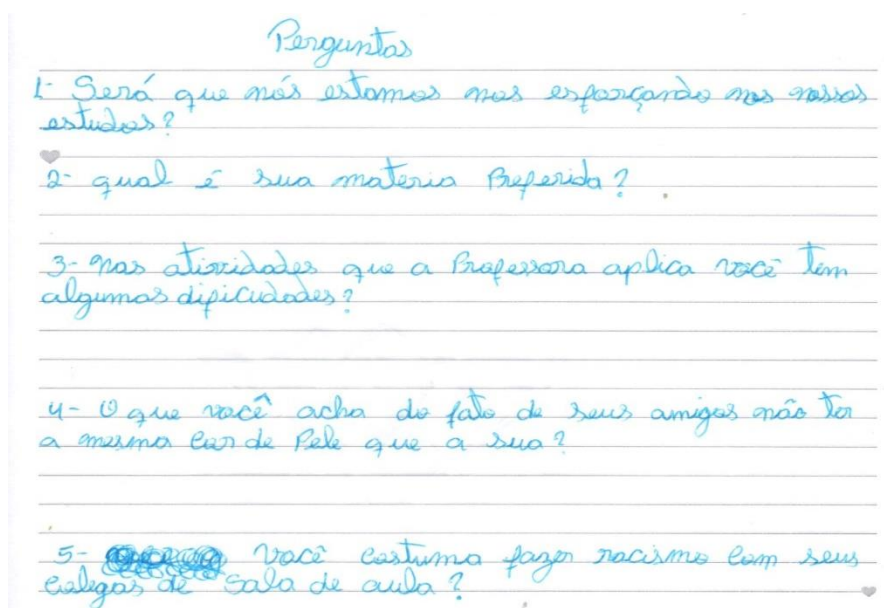 Perguntas
1- Será que nós estamos nos esforçando nos nossos
estudos?
2- qual é sua materia Preferida?
3- nas atividades que a Professora aplica você tem
algumas dificudades?
4- O que você acha do fato de seus amigos não ter
a mesma Cor de Pele que a sua?
5- você costuma fazer racismo com seus
colegas de sala de aula?